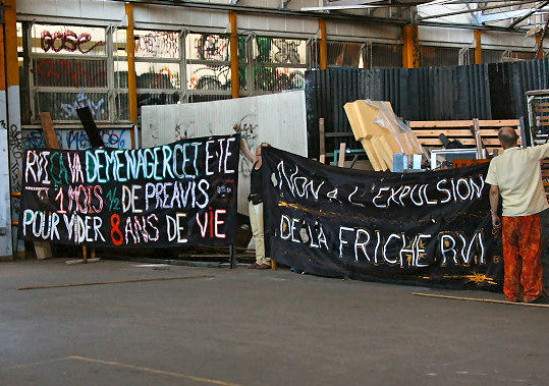 RVI ÇA VA DEMENAGER CET ÉTÉ
1 MOIS 1/2 DE PREAVIS
POUR VIDER 8 ANS DE VIE
NON A L'EXPULSION
DE LA FRICHE RVI